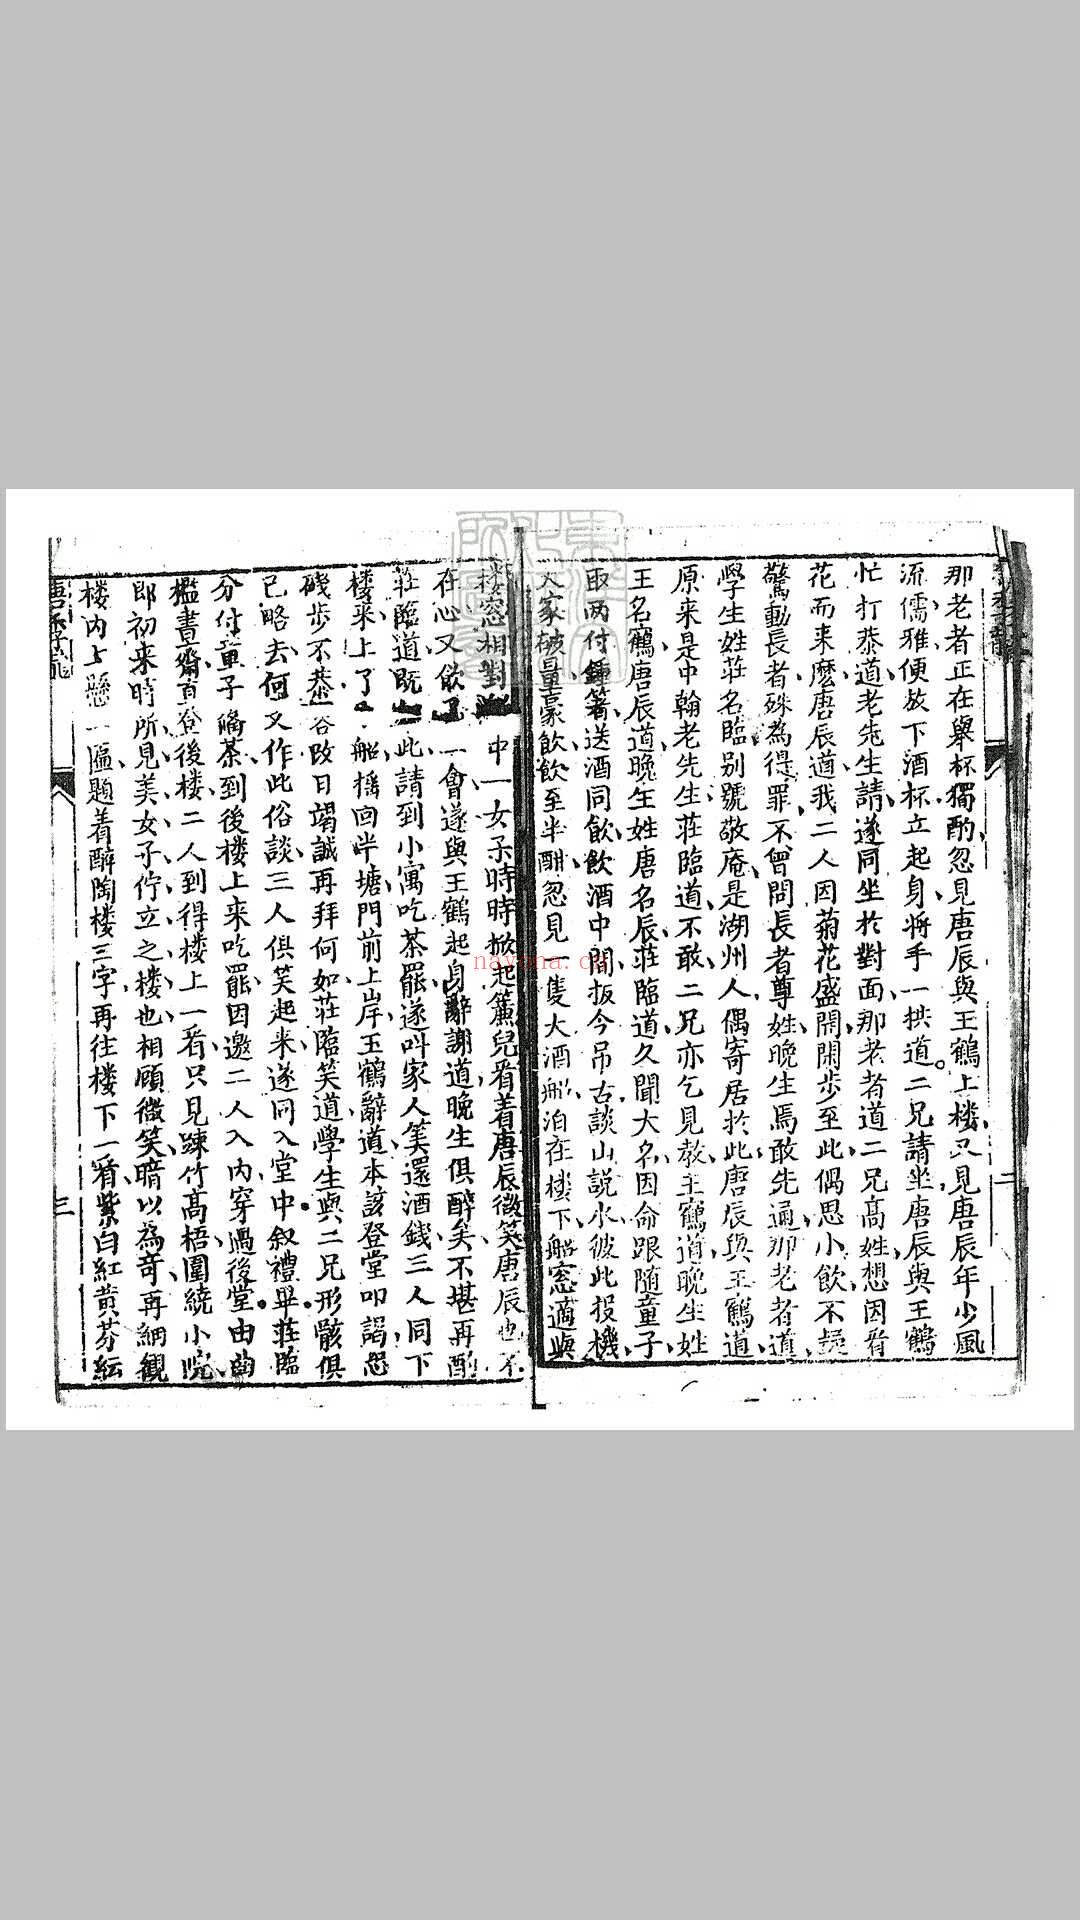 那老者正在舉杯獨酌忽見唐辰與王鶴上楼只見唐辰年少風
流儒雅便放下酒杯立起身將手一拱道二兄請坐唐辰與王鶴
忙打恭道老先生請遂同坐於對面那老者道二兄高姓想因看
花而来麽唐辰道我二人因菊花盛開閑步至此偶思小飲不疑
驚動長者殊為得罪不曾問長者尊姓晚生焉敢先通那老者道
學生姓莊名臨别號敬庵是湖州人偶寄居於此唐辰與王鶴道
原来是中翰老先生莊臨道不敢二兄亦乞見教王鶴道晚生姓
王名鶴唐辰道晚生姓唐名辰莊臨道久聞大名因命跟随童子
取两付鍾箸送酒同飲飲酒中間扳今吊古談山説水彼此投機
大家破量豪飲飲至半酣忽見一隻大酒船泊在楼下船窓適與
楼窓相對 中一女子時時掀起簾兒看着唐辰微笑唐辰也不
在心又飲了一會遂與王鶴起身辭謝道晚生俱醉矣不堪再酌
莊臨道既 此請到小寓吃茶罷遂叫家人筭還酒錢三人同下
楼来上了 船摇回半塘門前上岸王鶴辭道本該登堂叩謁恐
磯步不恭容改日竭誠再拜何如莊臨笑道學生與二兄形骸俱
已略去何又作此俗談三人俱笑起来遂同入堂中叙禮畢莊臨
分付童子 茶到後楼上来吃罷因邀二人入内穿過後堂由曲
檻書齋直登後楼二人到得楼上一看只見踈竹高梧圍繞小院
即初来時所見美女子佇立之楼也相顧微笑暗以為奇再細觀
楼内上懸一匾題着醉陶楼三字再往楼下一看紫白紅黄芬紜
二
三
nayona.cn